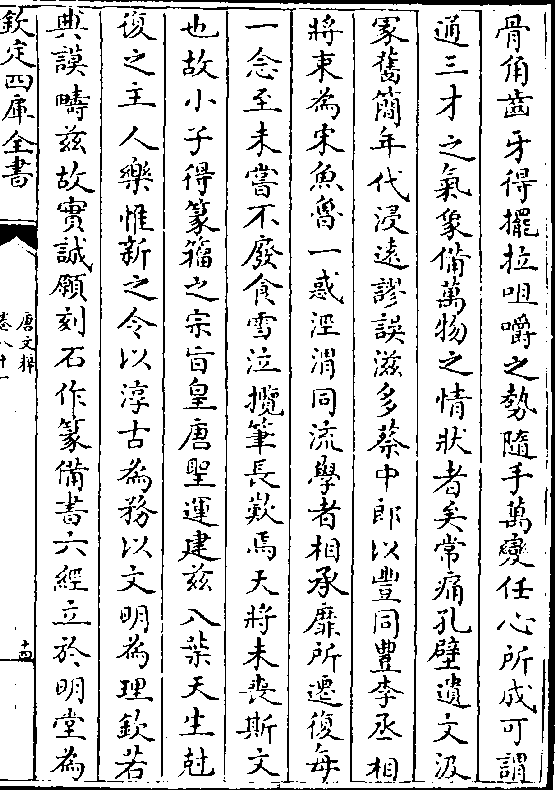 骨角齒牙得擺拉咀嚼之勢隨手萬變任心所成可謂
通三才之氣象備萬物之情狀者矣常痛孔壁遺文汲
冢舊簡年代浸逺謬誤滋多蔡中郎以豐同豊李丞相
將朿為宋魚魯一惑涇渭同流學者相承靡所遷復每
一念至未嘗不廢食雪泣攬筆長歎焉天將未喪斯文
也故小子得篆籀之宗旨皇唐聖運建兹八葉天生尅
復之主人樂惟新之令以淳古為務以文明為理欽若
典謨疇兹故實誠願刻石作篆備書六經立於明堂為
欽定四庫全書
唐文粹
卷八十一
十四